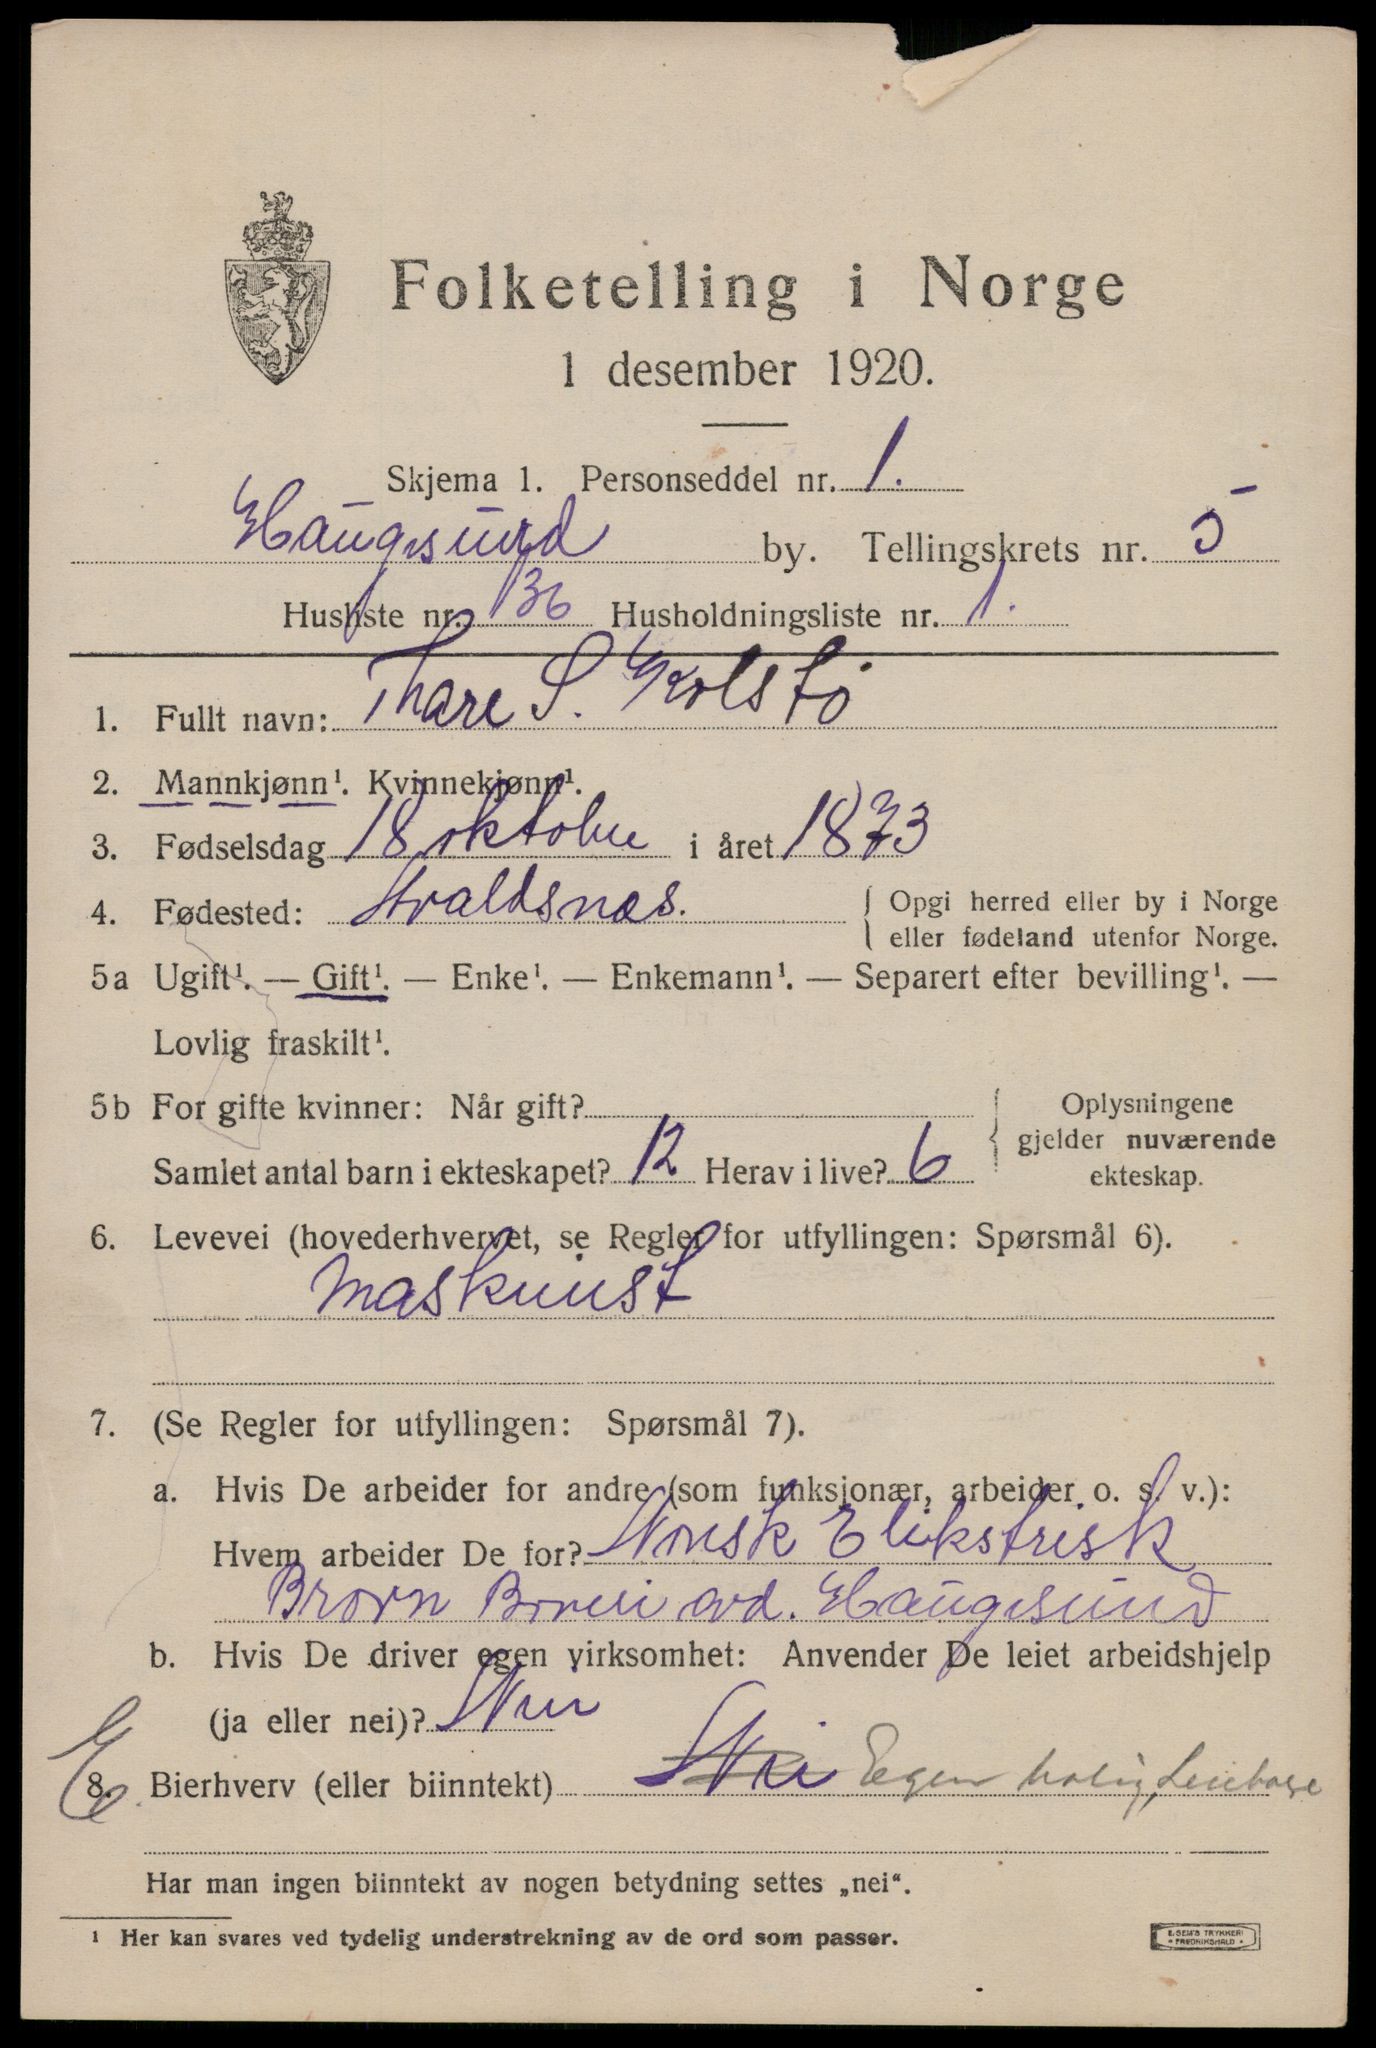 Folketelling i Norge
1 desember 1920.
Skjema 1. Personseddel nr. 1.
Haugesund by. Tellingskrets nr. 5
Husliste nr. 136 Husholdningsliste nr. 1.
1. Fullt navn: Thore S. Kolstø
2. Mannkjønn¹. Kvinnekjønn¹.
3. Fødselsdag 18 oktober i året 1873
4. Fødested: Avaldsnes. Opgi herred eller by i Norge
eller fødeland utenfor Norge.
5a Ugift¹. — Gift¹. — Enke¹. — Enkemann¹. — Separert efter bevilling¹. —
Lovlig fraskilt¹.
5b For gifte kvinner: Når gift?
Samlet antal barn i ekteskapet? 12 Herav i live? 6
Oplysningene
gjelder nuværende
ekteskap.
6. Levevei (hovederhvervet, se Regler for utfyllingen: Spørsmål 6).
Maskinist
7. (Se Regler for utfyllingen: Spørsmål 7).
a. Hvis De arbeider for andre (som funksjonær, arbeider o. s. v.):
Hvem arbeider De for? Norsk Elikstrisk
Brown Boveri avd. Haugesund
b. Hvis De driver egen virksomhet: Anvender De leiet arbeidshjelp
(ja eller nei)? Nei
E 8. Bierhverv (eller biinntekt) Nei Egen bolig,
Har man ingen biinntekt av nogen betydning settes „nei“.
¹ Her kan svares ved tydelig understrekning av de ord som passer.
E. SEM'S TRYKKERI
FREDRIKSHALD